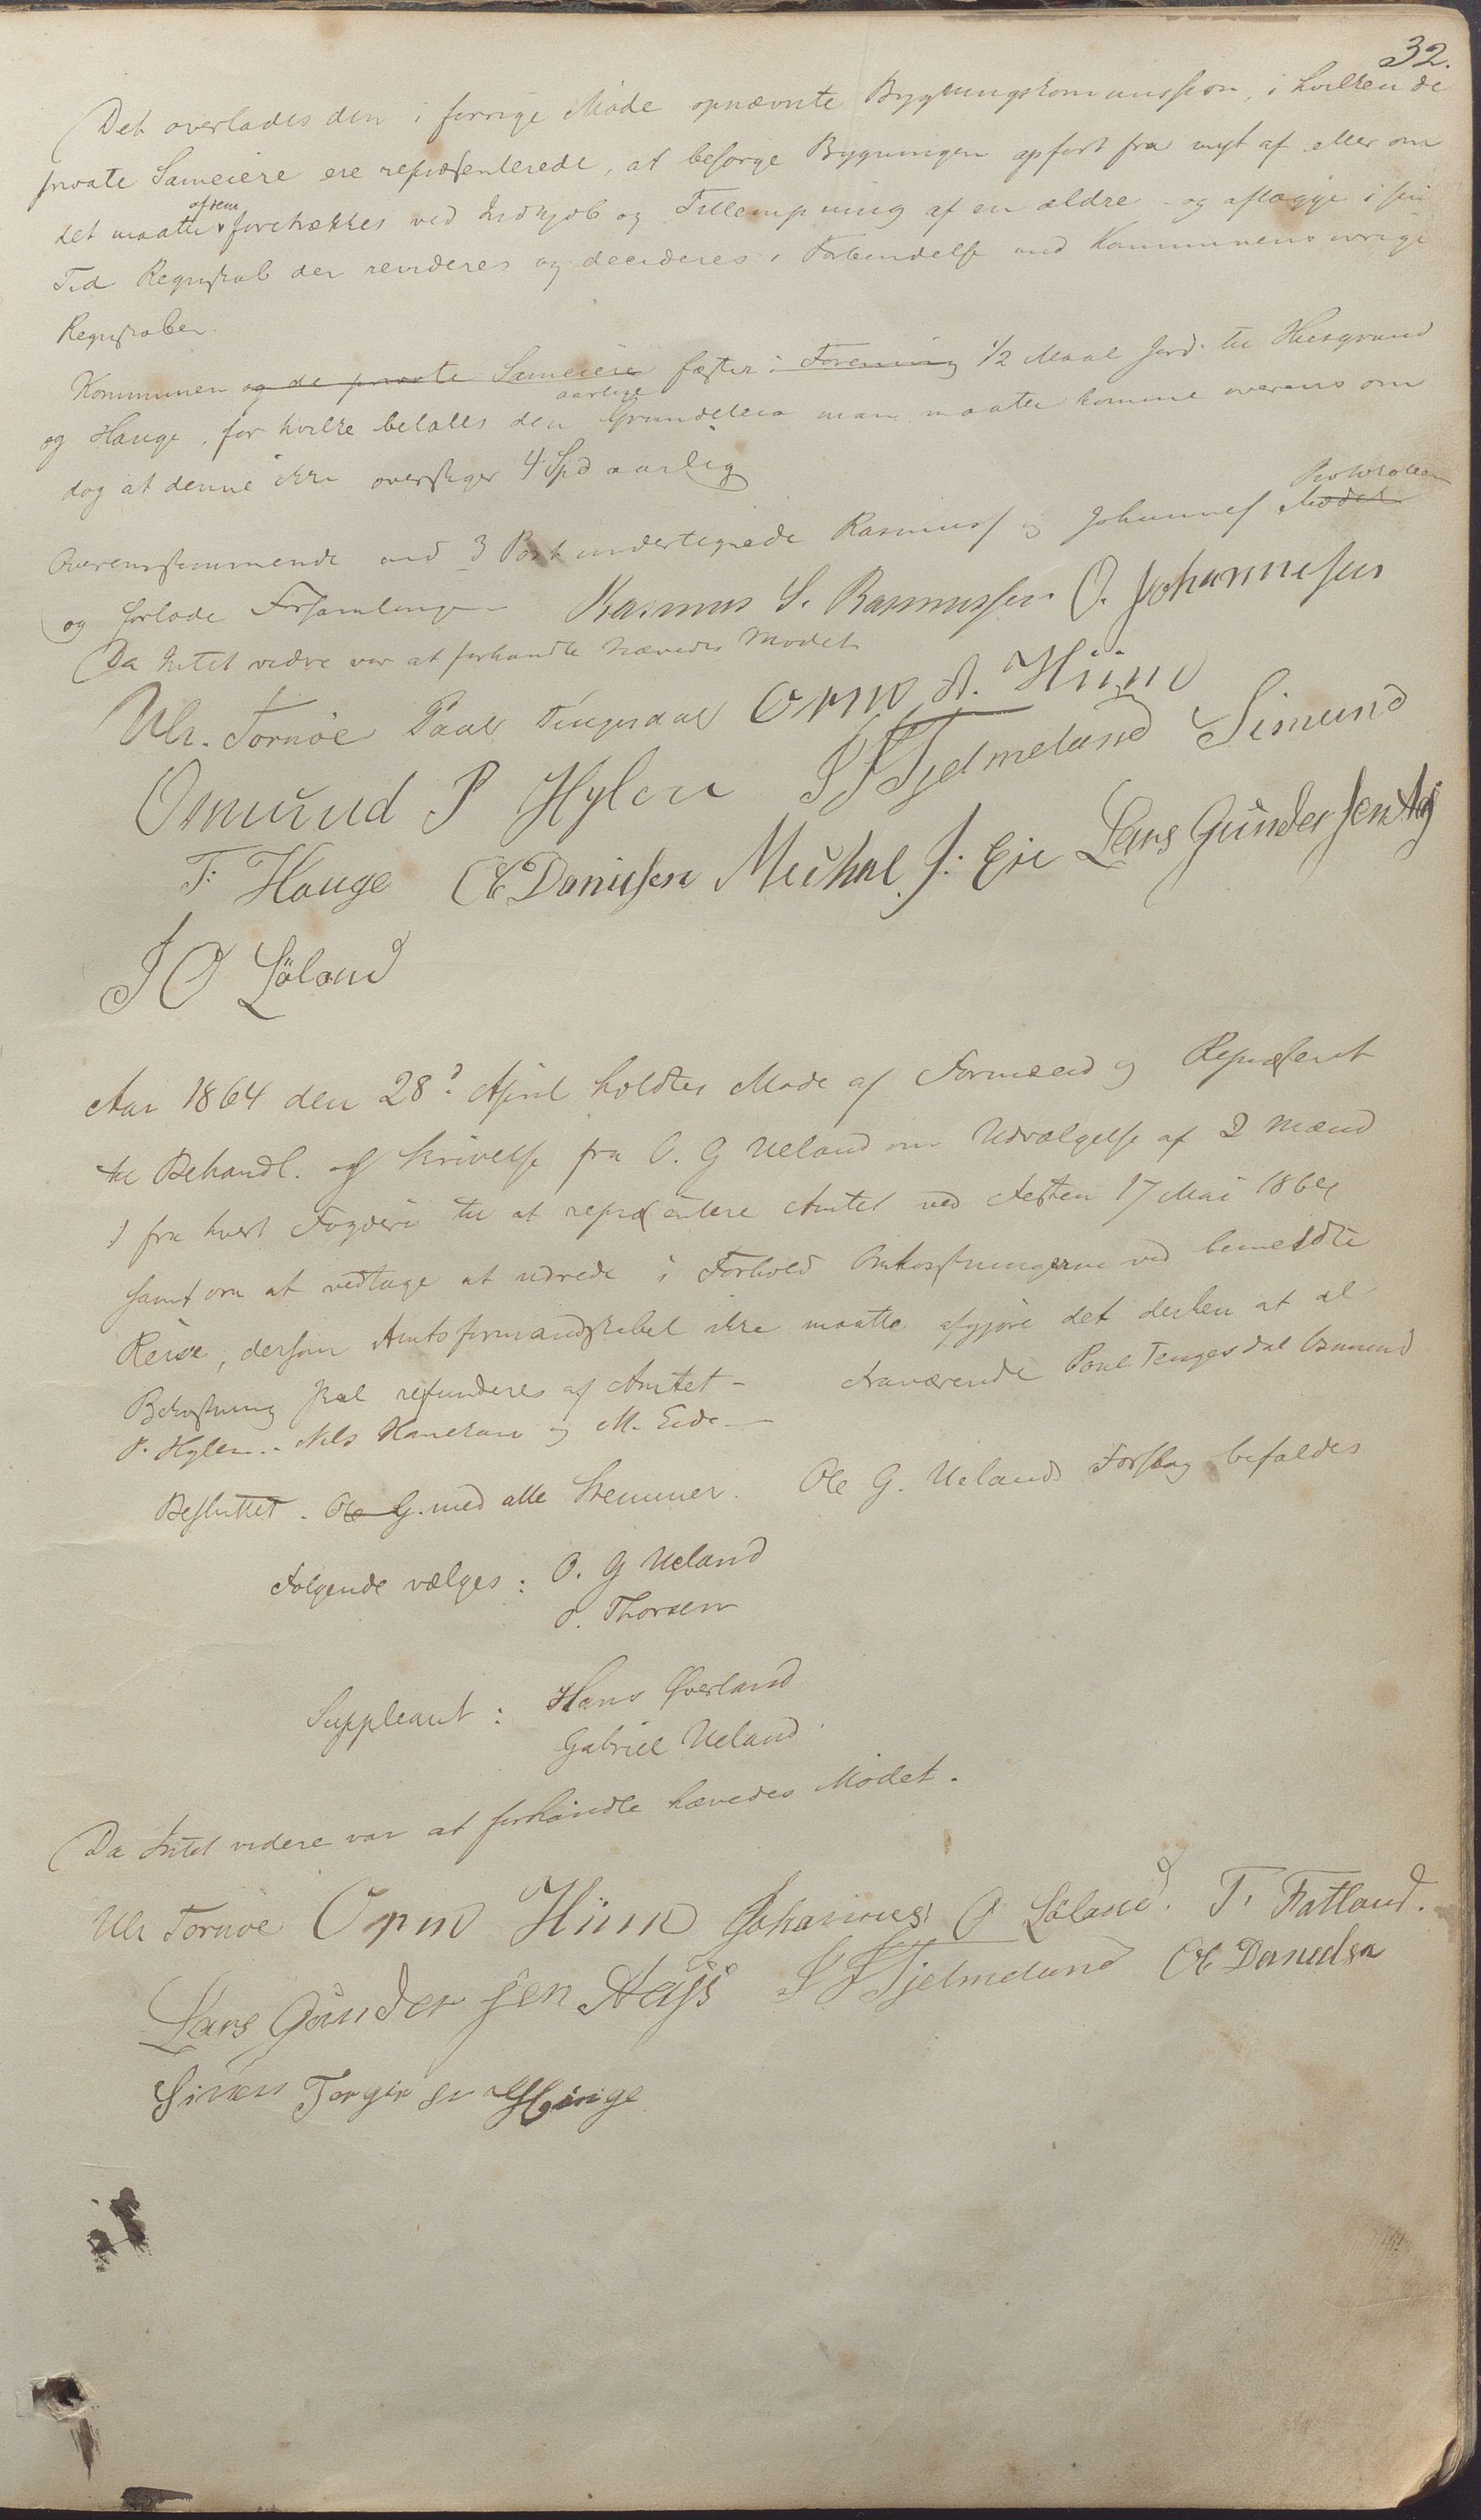 32.
Det overlades den i forrige Møde opnævnte Bygningskommission, i hvilken de
private Sameiere ere repræsenterede, at besørge Bygningen opført fra nyt af eller om
det maatte afdem foretrækkes ved Indkjøb og Tillempning af en ældre - og aflægge i sin
Tid Regnskab der revideres og decideres i Forbindelse med Kommunens øvrige
Regnskaber.
Kommunen og de private Sameiere fæster i Forening 1/2 Maal Jord til Huusgrund
og Hauge, for hvilke betales den aarlige Grundleie man maatte komme overens om
dog at denne ikke overstiger 4 Spd aarlig
Overensstemmende med 3 Post undertegnede Rasmuss og Johannes Mødet Protokollen
og forlode Forsamlingen Rasmus S. Rasmussen O. Johannesen
Da Intet vidre var at forhandle hævedes Mødet
Ulr. Tornøe Paul Tengesdal Orm A. Hiim
Omund P Hylen S S Tjelmeland Simund
T: Hauge Ol Danielsen Michal J: Eie Lars Gundersen
J O Löland
Aar 1864 den 28d April holdtes Møde af Formænd og Repræsent
til Behandl. af Skrivelse fra O. G Ueland om Udvælgelse af 2 Mænd
1 fra hvert Fogderi til at repræsentere Amtet ved Festen 17 Mai 1864
samt om at vedtage at udrede i Forhold Omkostningerne ved bemeldte
Reise, dersom Amtsformandskabet ikke maatte afgjøre det derhen at al
Bekostning skal refunderes af Amtet - Fraværende Poul Tengesdal Osmund
P. Hylen - Nils Hanekam og M. Eide -
Besluttet. Ole G. med alle Stemmer. Ole G. Uelands Forslag bifaldes
Følgende vælges: O. G Ueland
O. Thorsen
Suppleant: Hans Øverland
Gabriel Ueland.
Da Intet videre var at forhandle hævedes Mødet.
Ulr Tornøe Orm Hiim Johannes O Løland. T. Fatland.
Lars Gundersen S S Tjelmeland Ol Danielsn
Simen Torger sn Hauge